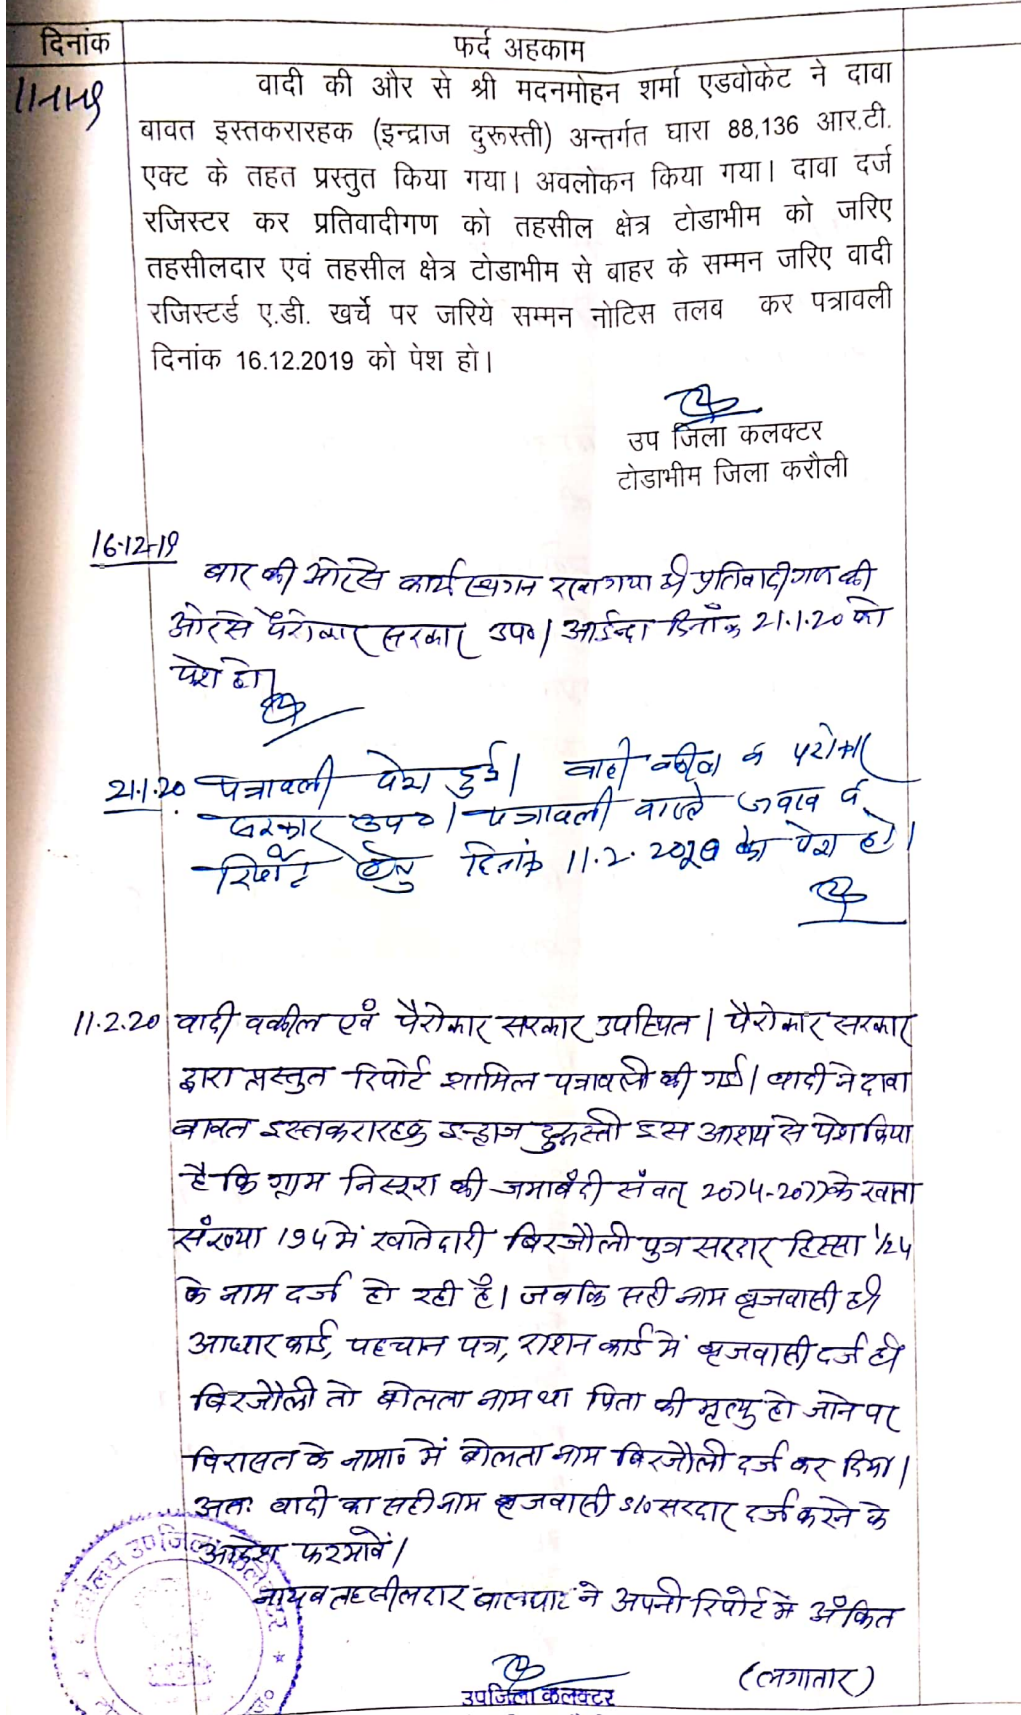 दिनांक
फर्द अहकाम
वादी की और से श्री मदनमोहन शर्मा एडवोकेट ने दावा
बावत इस्तकरारहक (इन्द्राज दुरूस्ती) अन्तर्गत घारा 88,136 आर.टी.
एक्ट के तहत प्रस्तुत किया गया। अवलोकन किया गया। दावा दर्ज
रजिस्टर कर प्रतिवादीगण को तहसील क्षेत्र टोडाभीम को जरिए
तहसीलदार एवं तहसील क्षेत्र टोडाभीम से बाहर के सम्मन जरिए वादी
रजिस्टर्ड ए.डी. खर्चे पर जरिये सम्मन नोटिस तलब कर पत्रावली
दिनांक 16.12.2019 को पेश हो।
उप जिला कलक्टर
टोडाभीम जिला करौली
16-12-19
बार की ओर से कार्य स्थगन रखा गया है प्रतिवादीगण की
ओर से पैरोकार सरकार उप०। आईन्दा दिनाँक 21.1.20 को
पेश हो।
21.1.20 पत्रावली पेश हुई। वादी वकील व परोकार
सरकार उप०। पत्रावली वास्ते जवाब व
रिपोर्ट हेतु दिनांक 11.2.2020 को पेश हो।
11.2.20 वादी वकील एवं पैरोकार सरकार उपस्थित। पैरोकार सरकार
द्वारा प्रस्तुत रिपोर्ट शामिल पत्रावली की गई। वादी ने दावा
बावत इस्तकरारहक इन्द्राज दुरूस्ती इस आशय से पेश किया
है कि ग्राम निसूरा की जमाबंदी संवत् 2074-2077 के खाता
संख्या 194 में खातेदारी बिरजौली पुत्र सरदार हिस्सा 1/24
के नाम दर्ज हो रही है। जबकि सही नाम बृजवासी है
आधार कार्ड, पहचान पत्र, राशन कार्ड में बृजवासी दर्ज है
बिरजौली तो बोलता नाम था पिता की मृत्यु हो जाने पर
विरासत के नामा० में बोलता नाम बिरजौली दर्ज कर दिया।
अतः वादी का सही नाम बृजवासी S/o सरदार दर्ज करने के
आदेश फरमावें।
नायब तहसीलदार बालघाट ने अपनी रिपोर्ट में अंकित
(लगातार)
उपजिला कलक्टर